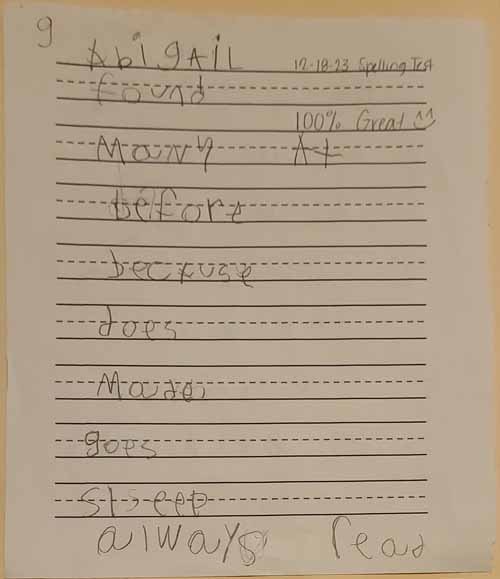 9
AbigAiL 12-18-23 Spelling Test
found
100% Great
Many A+
before
because
does
Made
goes
sleep
always read